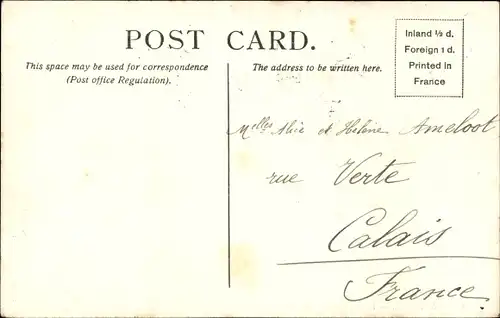 POST CARD.
This space may be used for correspondence
(Post office Regulation).
The address to be written here.
Inland ½ d.
Foreign 1 d.
Printed in
France
Melles Alice et Helene Ameloot
rue Verte
Calais
France